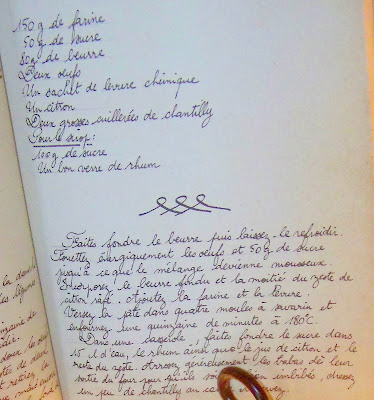 150 g de farine
50 g de sucre
80 g de beurre
Deux oeufs
Un sachet de levure chimique
Un citron
Deux grosses cuillerées de chantilly
Pour le sirop :
100 g de sucre
Un bon verre de rhum
Faites fondre le beurre puis laissez-le refroidir.
Fouettez énergiquement les oeufs et 50 g de sucre
jusqu'à ce que le mélange devienne mousseux.
Incorporez le beurre fondu et la moitié du zeste de
citron râpé. Ajoutez la farine et la levure.
Versez la pâte dans quatre moules à savarin et
enfournez une quinzaine de minutes à 180°C.
Dans une casserole, faites fondre le sucre dans
15 cl d'eau, le rhum ainsi que le jus de citron et le
reste du zeste. Arrosez généreusement les babas dès leur
sortie du four pour qu'ils soient bien imbibés, dressez
un peu de chantilly au